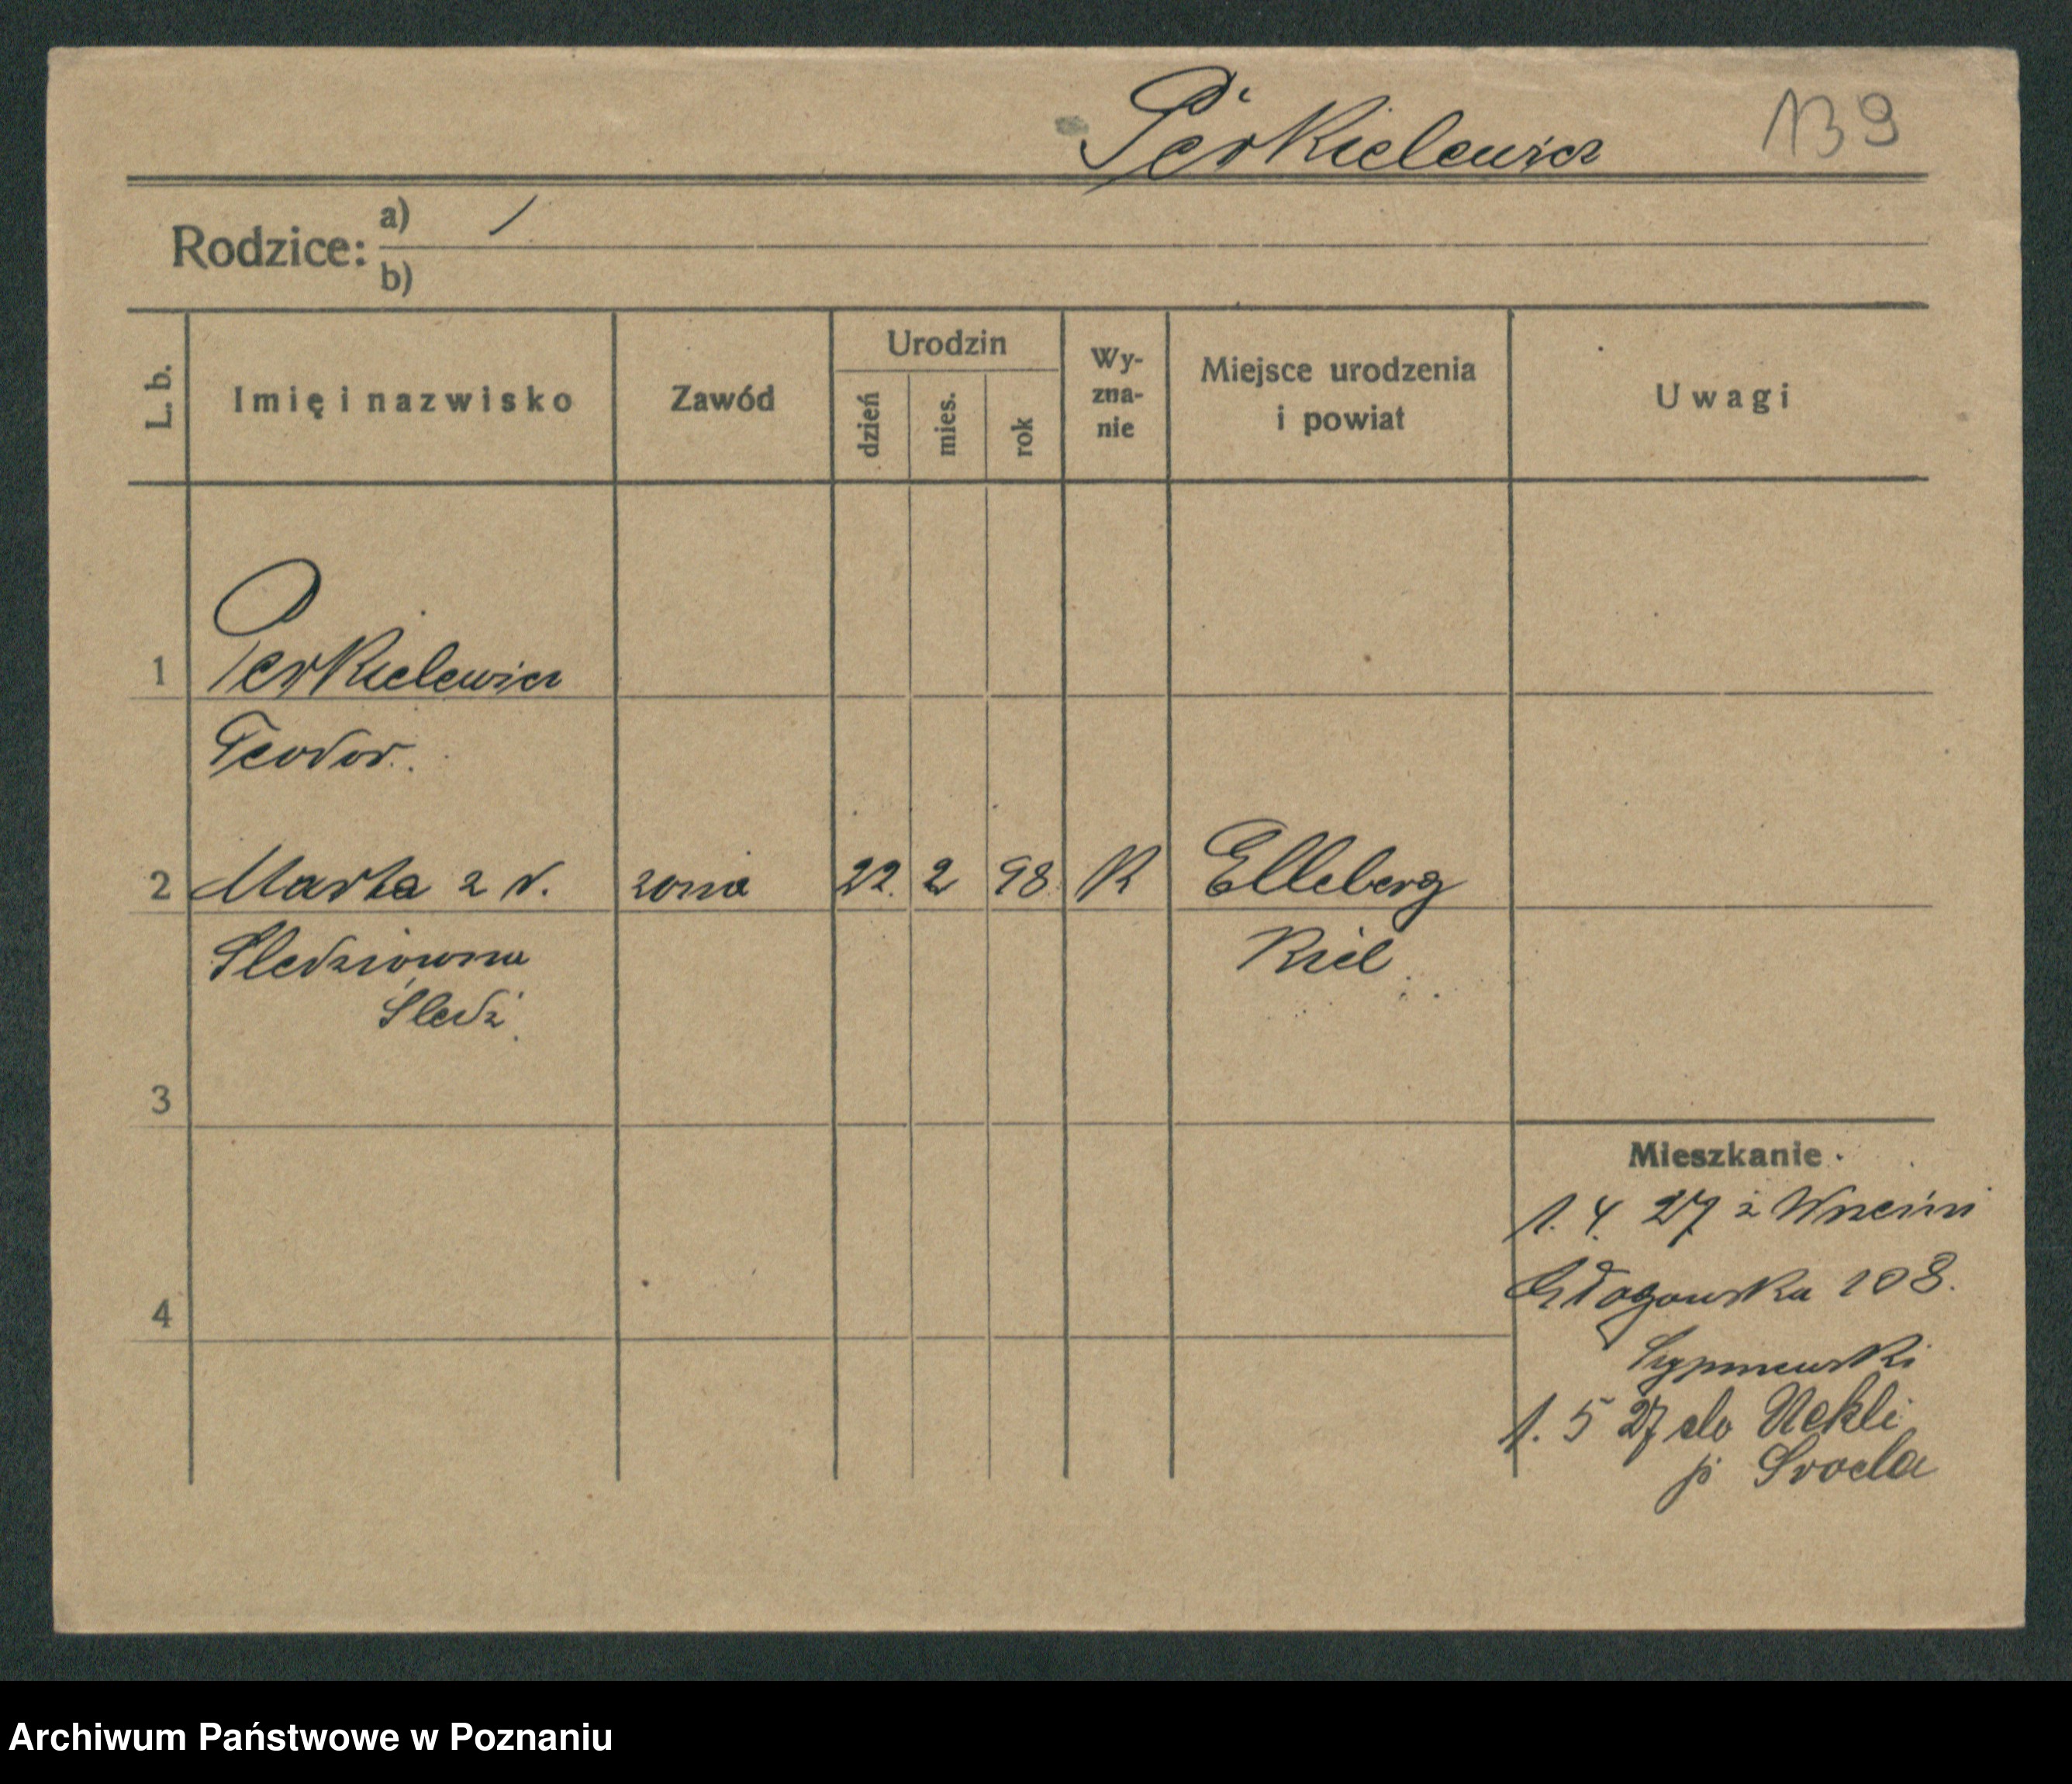 Perkielewicz 139
Rodzice: a) /
b)
L. b. Imię i nazwisko Zawód Urodzin dzień mies. rok Wyznanie Miejsce urodzenia i powiat Uwagi
1 Perkielewicz
Teodor.
2 Marta z d. żona 22. 2 98 K Elleberg
Sledziówna Kiel
Sledź
3
Mieszkanie
1. 4. 27 z Wrześni
Głogowska 108.
4
1. 5 27 do Nekli
p Sroda
Archiwum Państwowe w Poznaniu